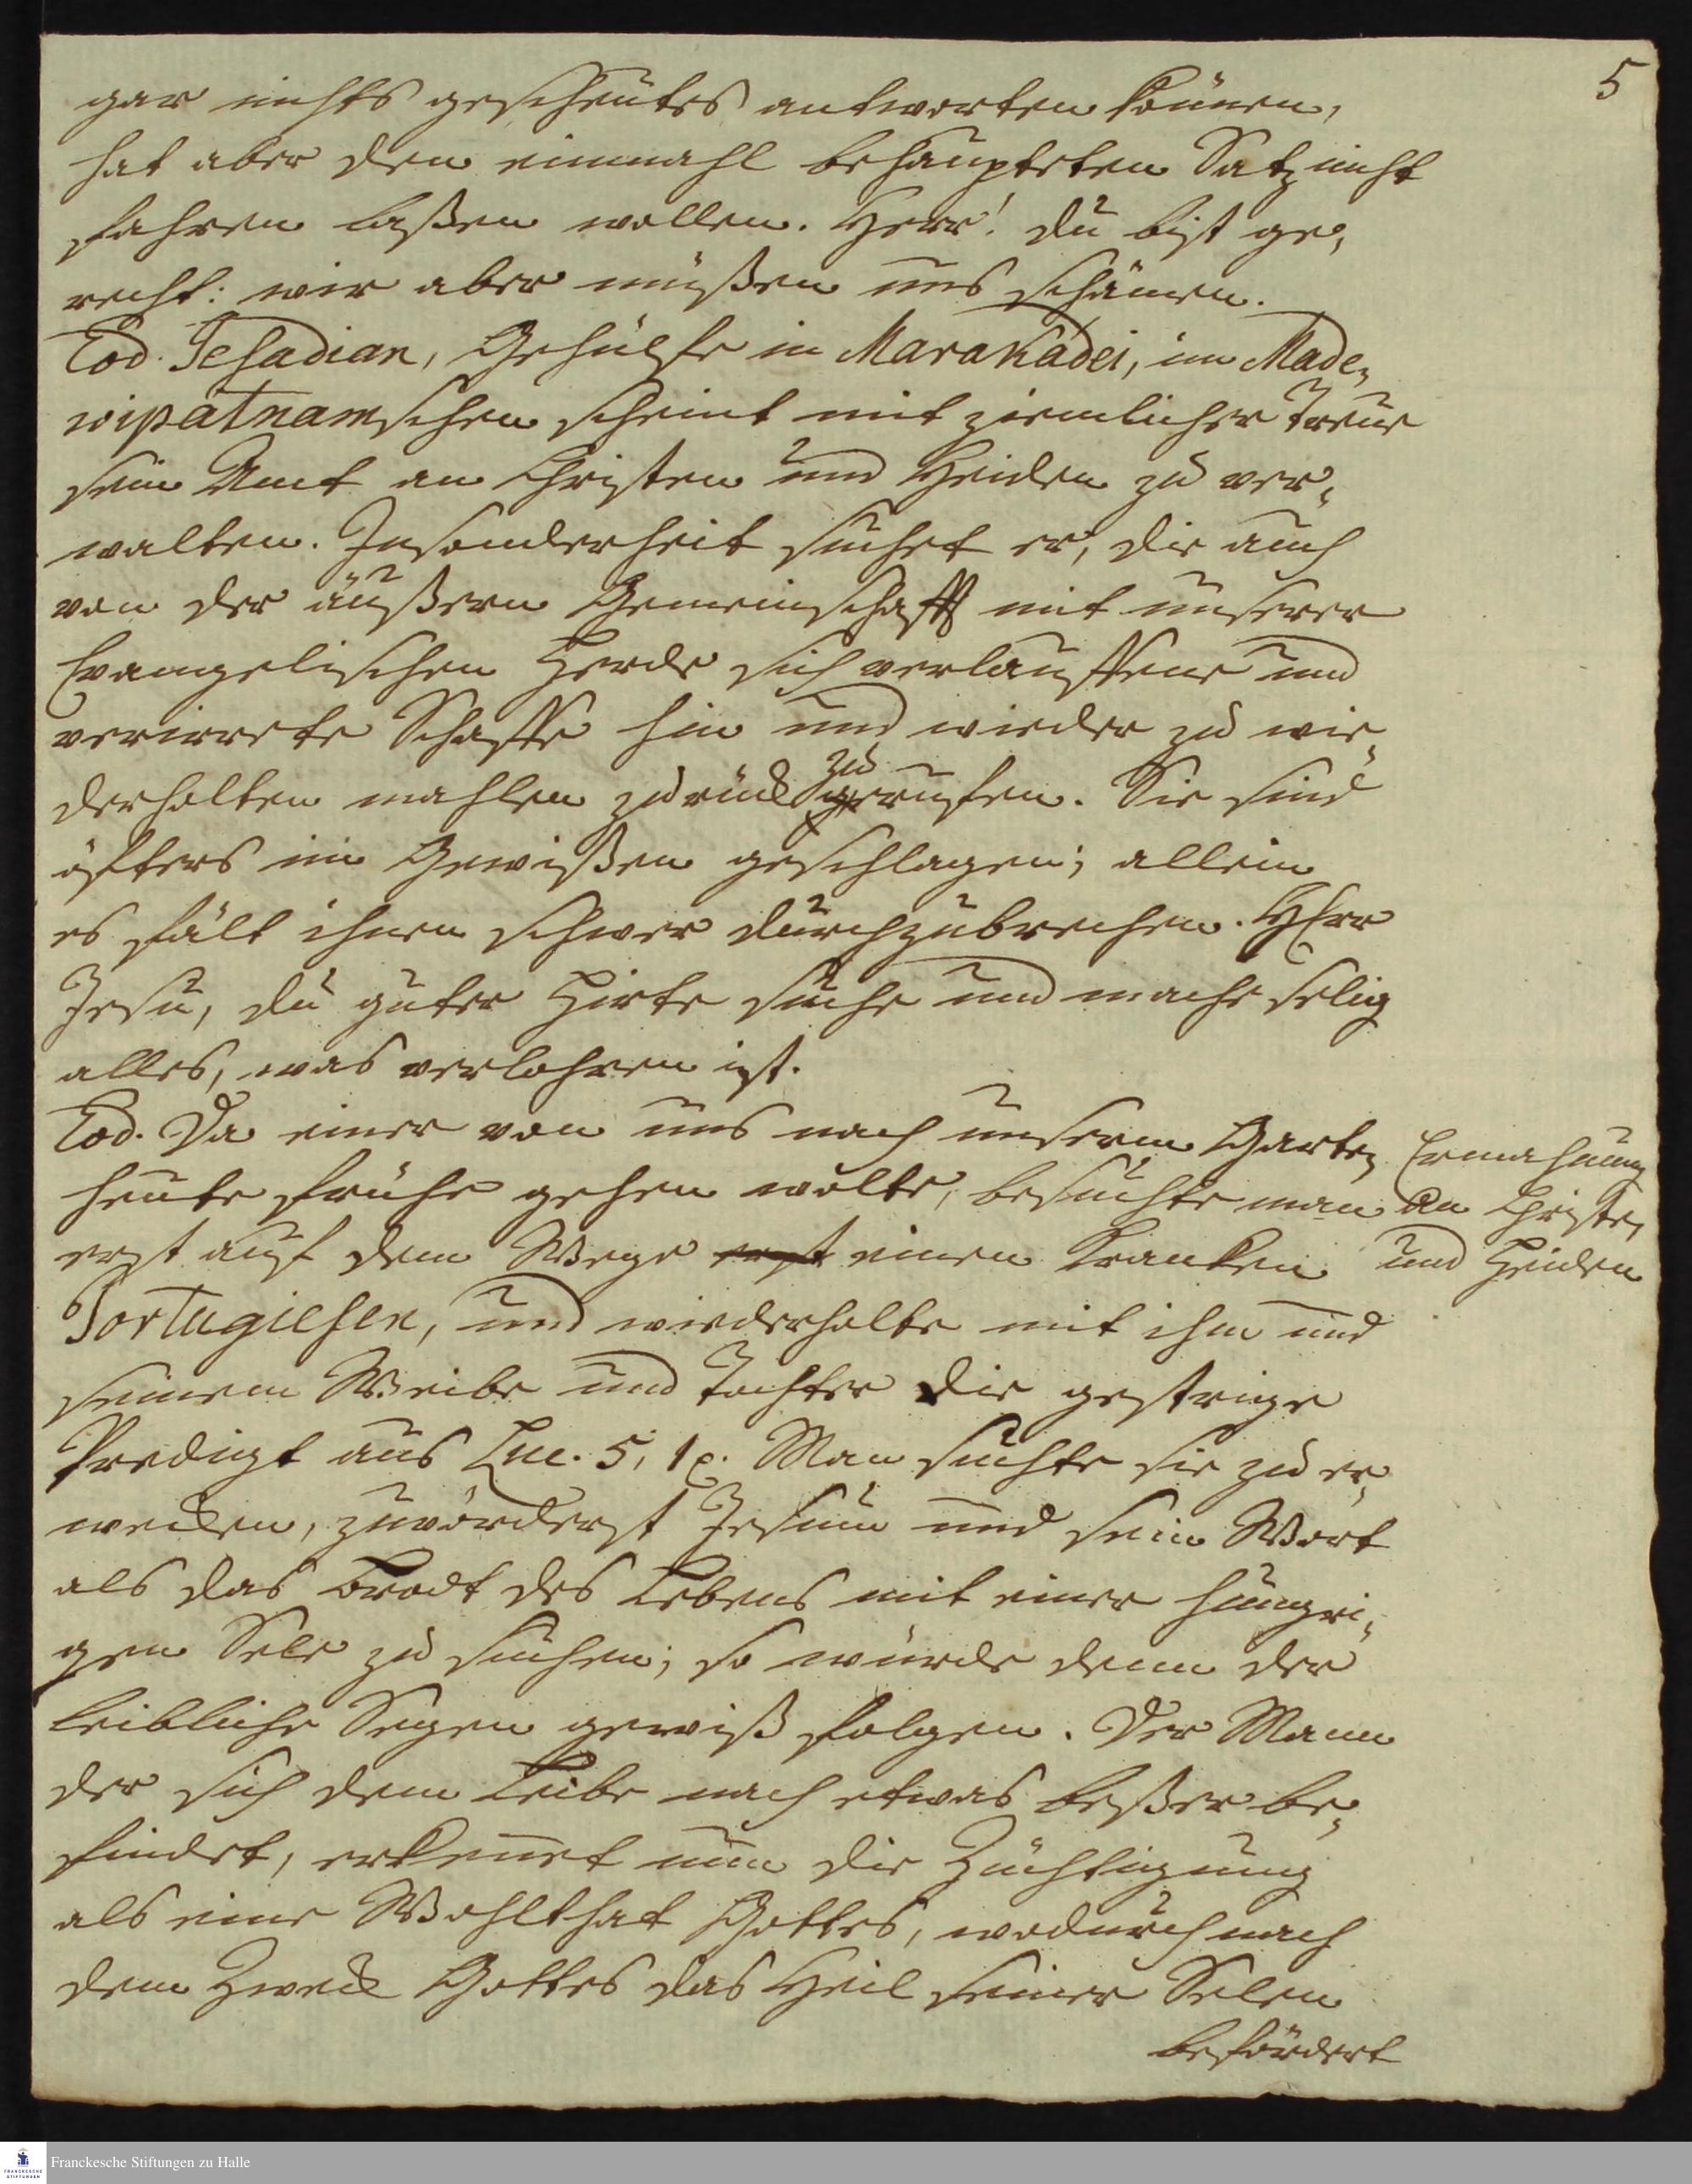 5
gar nichts gescheutes antworten können,
hat aber den einmahl behaupteten Satz nicht
fahren laßen wollen. Herr! du bist ge-
recht: wir aber müßen uns schämen.
Eod. Jesadian, Gehülfe in Marakádei, im Made-
wipatnamschen scheint mit ziemlicher Treue
sein Amt an Christen und Heiden zu ver-
walten. Insonderheit suchet er, die auch
von der äußern Gemeinschafft mit unserer
Evangelischen Herde sich verlauffene und
verirrete Schaffe hin und wieder zu wie-
derholten mahlen zurück zu rufen. Sie sind
öfters im Gewißen geschlagen; allein
es fält ihnen schwer durchzubrechen. HErr
Jesu, du guter Hirte suche und mache selig
alles, was verlohren ist.
Eod. Da einer von uns nach unserm Garten
heute frühe gehen wolte, besuchte man
erst auf dem Wege erst einen kranken
Portugiesen, und wiederholte mit ihm und
seinem Weibe und Tochter die gestrige
Predigt aus Luc. 5, 1 c. Man suchte sie zu er-
wecken, zuvörderst Jesum und sein Wort
als das Brodt des Lebens mit einer hungri-
gen Sele zu suchen; so würde denn der
leibliche Segen gewiß folgen. Der Mann
der sich dem Leibe nach etwas beßer be-
findet, erkennet nun die Züchtigung
als eine Wohlthat Gottes, wodurch nach
dem Zweck Gottes das Heil seiner Selen
befördert
Ermahnung
an Christen
und Heiden
Franckesche Stiftungen zu Halle